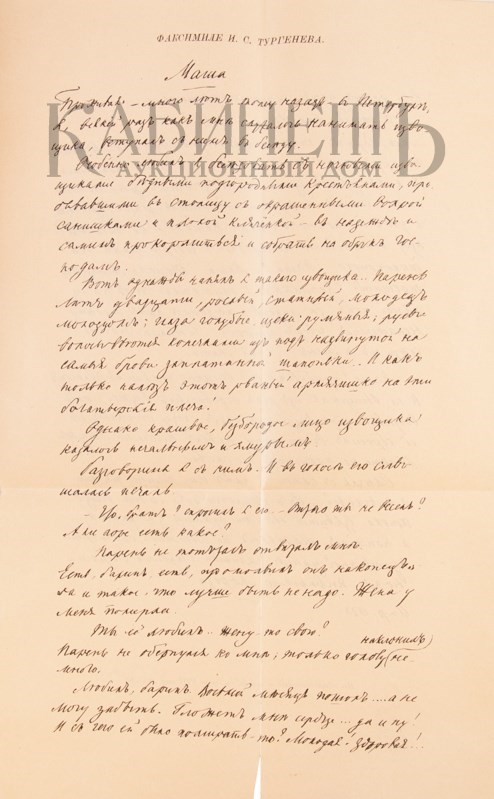 ФАКСИМИЛЕ И. С. ТУРГЕНЕВА.
Маша
Проживая – много лѣтъ тому назадъ въ Петербургѣ,
я, всякій разъ какъ мнѣ случалось нанимать изво-
щика, вступалъ съ нимъ въ бесѣду.
КАБИНЕТЪ
АУКЦИОННЫЙ ДОМ
Особенно любилъ я бесѣдовать съ ночными изво-
щиками бѣдными подгородными крестьянами, при
бывавшими въ столицу съ окрашенными вохрой
санишками и плохой клячёнкой – въ надеждѣ и
самимъ прокормиться и собрать на оброкъ гос-
подамъ.
Вотъ однажды нанялъ я такого извощика.. Парень
лѣтъ двадцати, рослый, статный, молодецъ
молодцомъ; глаза голубые, щеки румяныя; русые
волосы вьются колечками изъ подъ надвинутой на
самыя брови заплатанной шапонки. И какъ
только налѣзъ этотъ рваный армячишко на эти
богатырскія плеча!
Однако красивое, безбородое лицо извощика
казалось печальнымъ и хмурымъ.
Разговорился я съ нимъ. И въ голосѣ его слы-
шалась печаль
– Что, братъ? спросилъ я его. – Отчего ты не веселъ?
Али горе есть какое?
Парень не тотчасъ отвѣчалъ мнѣ.
Есть, баринъ, есть, промолвилъ онъ наконецъ.
Да и такое, что лучше быть не надо. Жена у
меня померла.
Ты её любилъ.. жену-то свою?
Парень не обернулся ко мнѣ; только голову наклонилъ не-
много.
Любилъ, баринъ. Восьмой мѣсяцъ пошолъ.... а не
могу забыть. Гложетъ мнѣ сердце... да и ну!
И съ чего ей было помирать-то? Молодая! здоровая!...